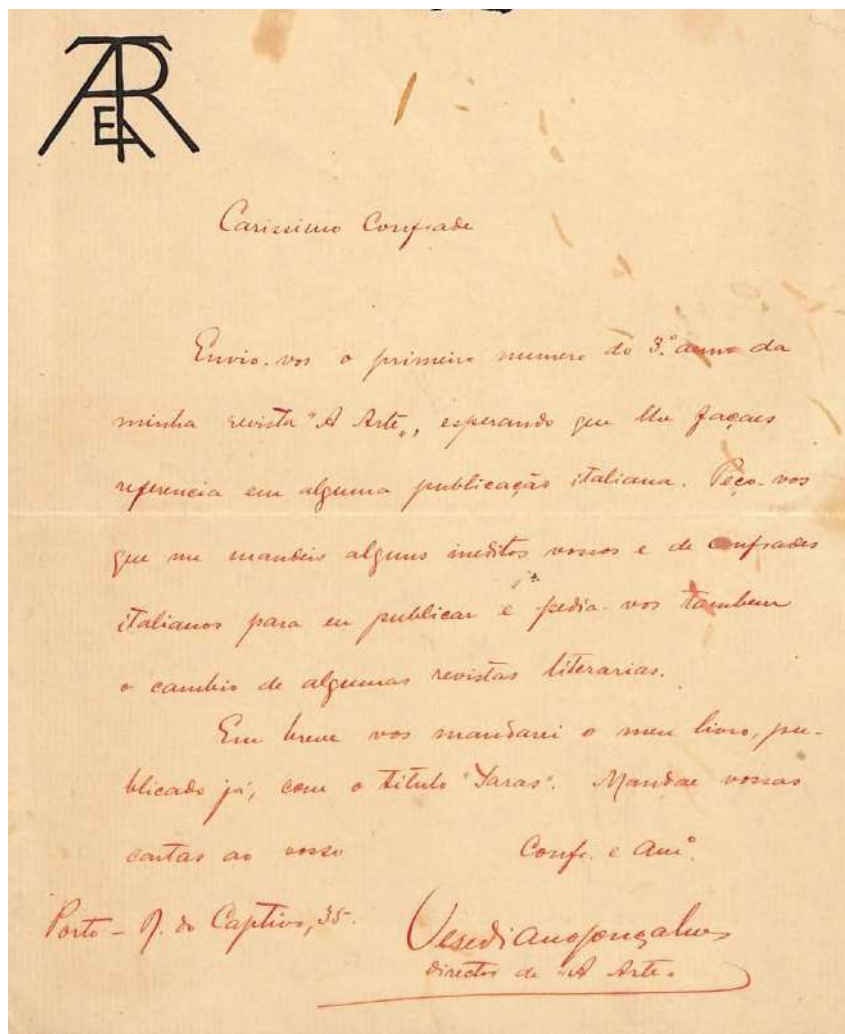 ARTE
Carissimo Confrade
Envio-vos o primeiro numero do 3.º anno da
minha revista "A Arte", esperando que lhe façaes
referencia em alguma publicação italiana. Peço-vos
que me mandeis alguns ineditos vossos e de confrades
italianos para eu publicar e pedia-vos tambem
o cambio de algumas revistas literarias.
Em breve vos mandarei o meu livro, pu-
blicado já, com o titulo "Yaras". Mandae vossas
cartas ao vosso Confr. e Amº.
Porto - R. do Captivo, 35.
Gonçalves
director de "A Arte"